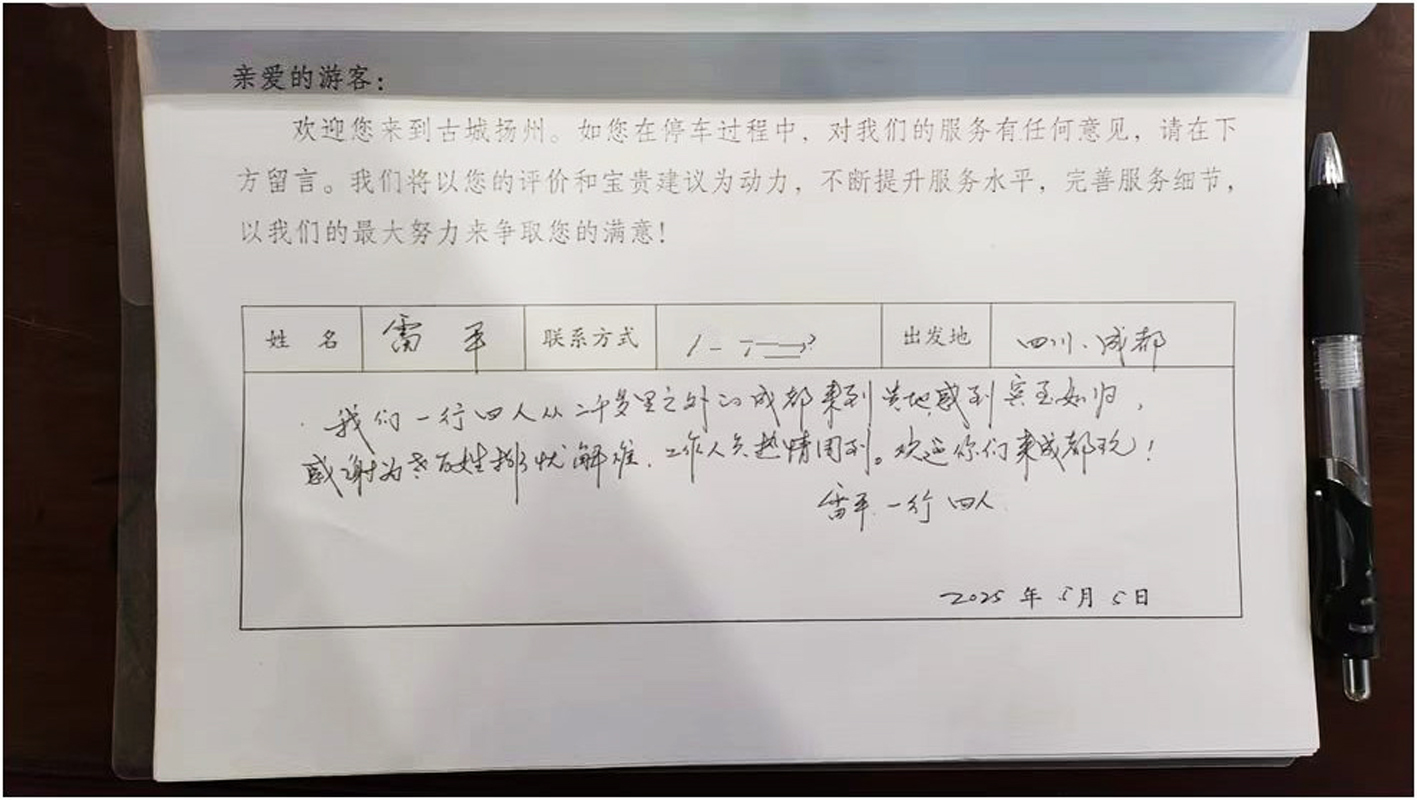 亲爱的游客：
欢迎您来到古城扬州。如您在停车过程中，对我们的服务有任何意见，请在下
方留言。我们将以您的评价和宝贵建议为动力，不断提升服务水平，完善服务细节，
以我们的最大努力来争取您的满意！
姓 名 雷 平 联系方式 出发地 四川、成都
我们一行四人从二千多里之外的成都来到贵地感到宾至如归，
感谢为老百姓排忧解难、工作人员热情周到。欢迎你们来成都玩！
雷平一行四人
2025年5月5日